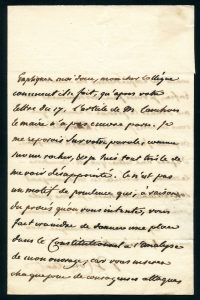 Expliquez moi donc, mon cher collègue
comment il se fait, qu'après votre
lettre du 17, l'article de M.
le maire n'a pas encore paru. Je
me reposois sur votre parole, comme
sur un rocher, et je suis tout triste de
me voir désappointé. Ce n'est pas
un motif de prudence qui, à raison
du procès qu'on vous intente, vous
fait craindre de donner une place
dans le Constitutionnel à l'analyse
de mon ouvrage, car vous insérez
chaque jour de courageuses attaques